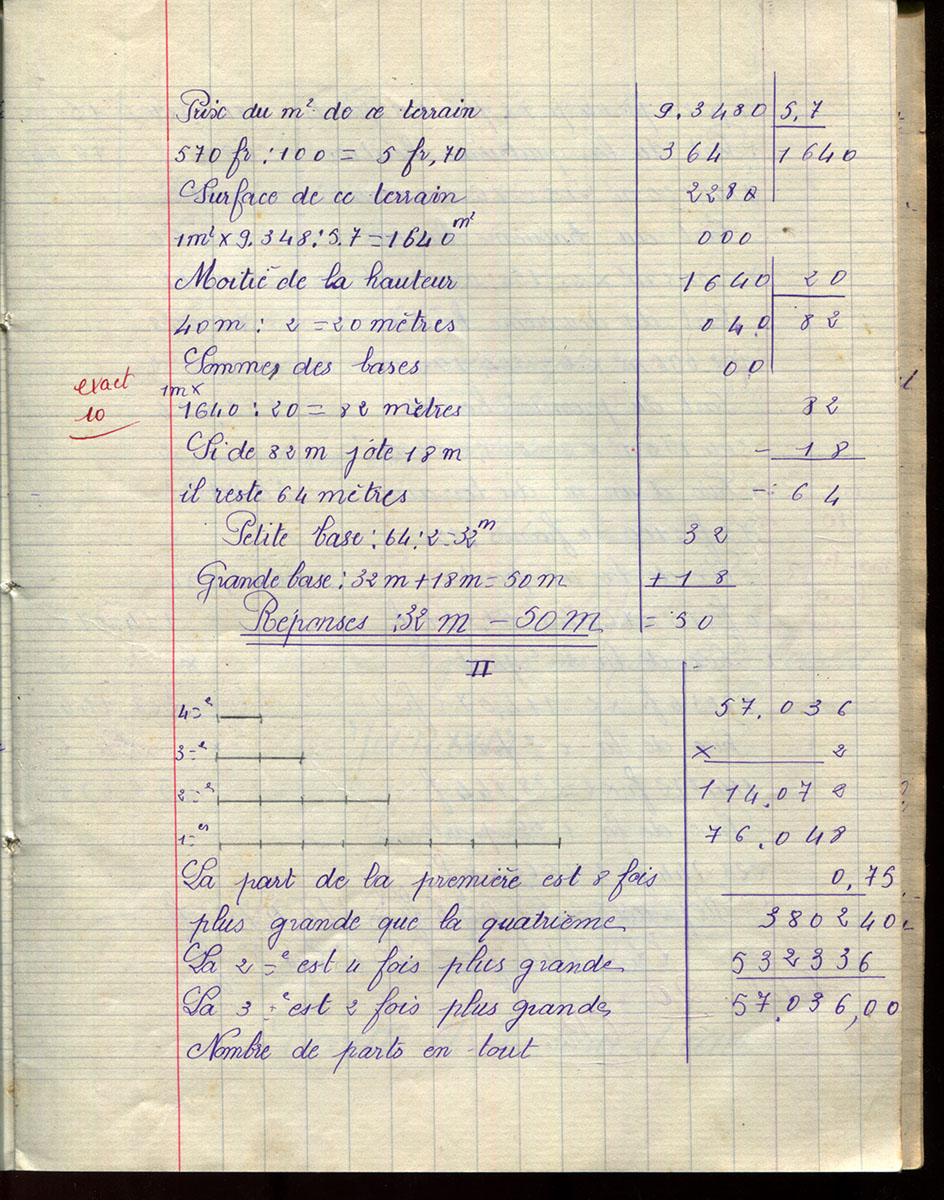 Prix du m² de ce terrain
570 fr : 100 = 5 fr,70
Surface de ce terrain
1m² x 9.348 : 5.7 = 1640 m²
Moitié de la hauteur
40m : 2 = 20 mètres
Sommes des bases
exact
10
1m x
1640 : 20 = 82 mètres
Si de 82m j'ôte 18m
il reste 64 mètres
Petite base : 64 : 2 = 32 m
Grande base : 32m + 18m = 50m
Réponses : 32 m - 50 m
9.3480 5,7
364 1640
2280
000
1640 20
040 82
00
82
- 18
= 64
32
+ 18
= 50
II
4=e
3=e
2=e
1=er
La part de la première est 8 fois
plus grande que la quatrième
La 2=e est 4 fois plus grande
La 3=e est 2 fois plus grande
Nombre de parts en tout
57.036
x 2
114.072
76.048
0,75
380240
532336
57.036,00